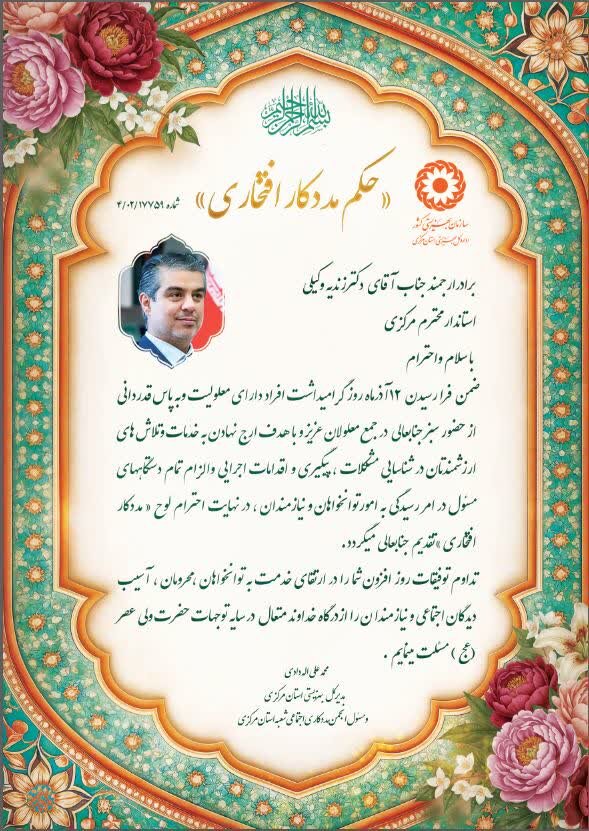 بسم الله الرحمن الرحیم
« حکم مددکار افتخاری »
شماره ۴/۰۲/۱۷۷۵۹
سازمان بهزیستی کشور
اداره کل بهزیستی استان مرکزی
برادر ارجمند جناب آقای دکتر زندیه وکیلی
استاندار محترم مرکزی
با سلام و احترام
ضمن فرا رسیدن ۱۲ آذر ماه روز گرامیداشت افراد دارای معلولیت و به پاس قدردانی
از حضور سبز جنابعالی در جمع معلولان عزیز و با هدف ارج نهادن به خدمات و تلاش های
ارزشمندتان در شناسایی مشکلات ، پیگیری و اقدامات اجرایی و الزام تمام دستگاههای
مسئول در امر رسیدگی به امور توانخواهان و نیازمندان ، در نهایت احترام لوح « مددکار
افتخاری » تقدیم جنابعالی میگردد.
تداوم توفیقات روز افزون شما را در ارتقای خدمت به توانخواهان ،محرومان ، آسیب
دیدگان اجتماعی و نیازمندان را از درگاه خداوند متعال در سایه توجهات حضرت ولی عصر
(عج ) مسئلت مینمایم .
محمد علی اله دادی
مدیر کل بهزیستی استان مرکزی
و مسئول انجمن مددکاری اجتماعی شعبه استان مرکزی